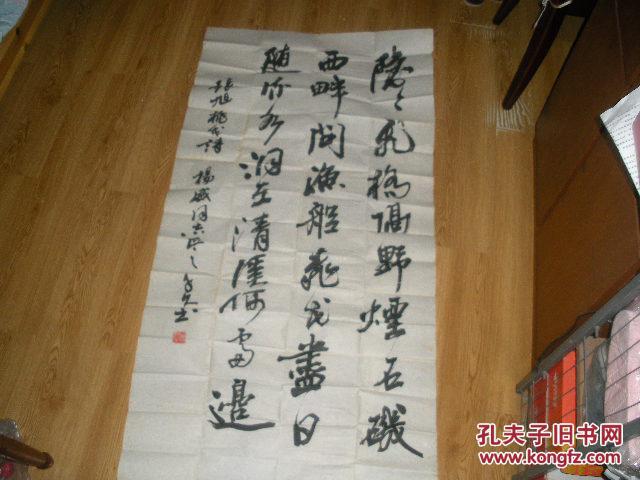 隐々飞橋隔野煙石磯
西畔问渔船桃花盡日
随流水洞在清溪何處邊
張旭桃花诗 楊威同志
孔夫子旧书网
www.kongfz.com